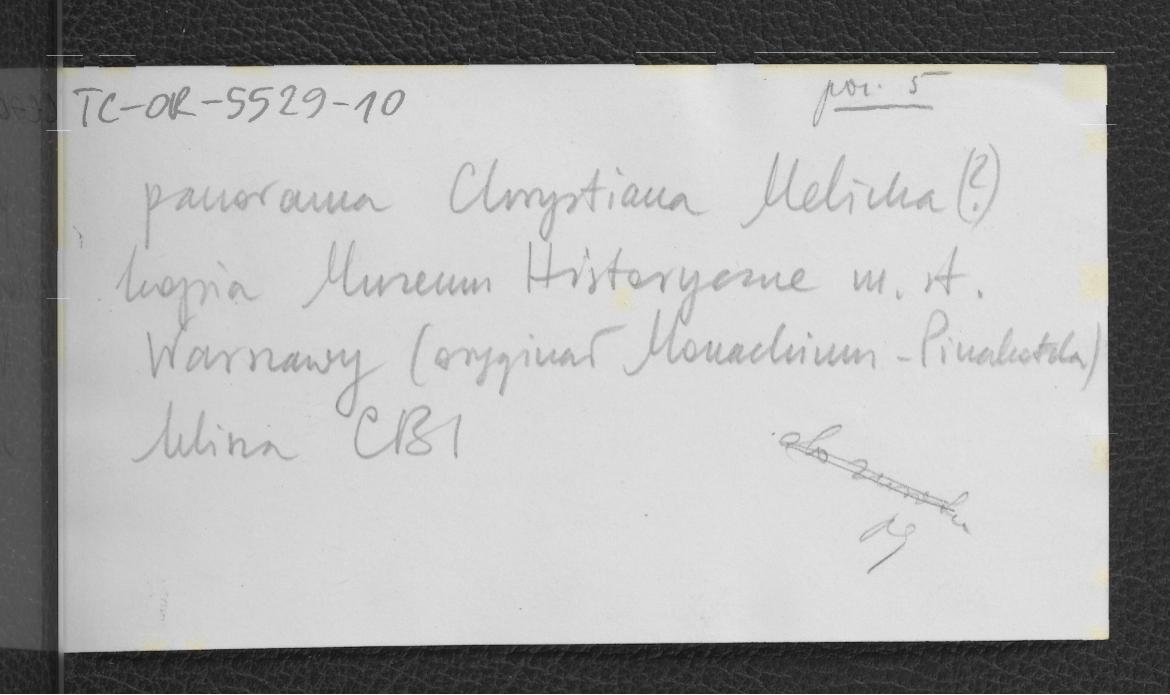 TC-OR-5529-10
poz. 5
panorama Chrystiana Melicha (?)
kopia Muzeum Historyczne m. st.
Warszawy (oryginał Monachium - Pinakoteka)
klisza CBI
do zwrotu